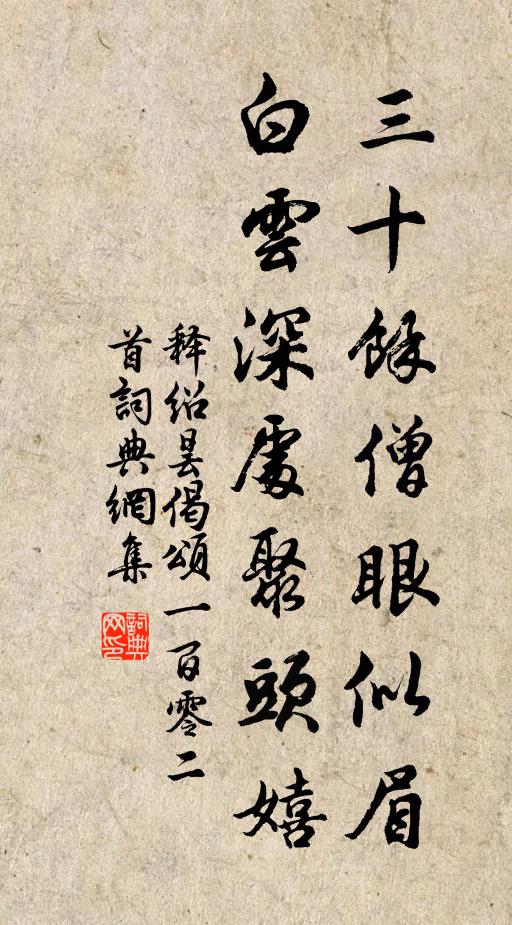 三十餘僧眼似眉
白雲深處聚頭嬉
释紹昙偈頌一百零二
首詞典網集
詞典网印